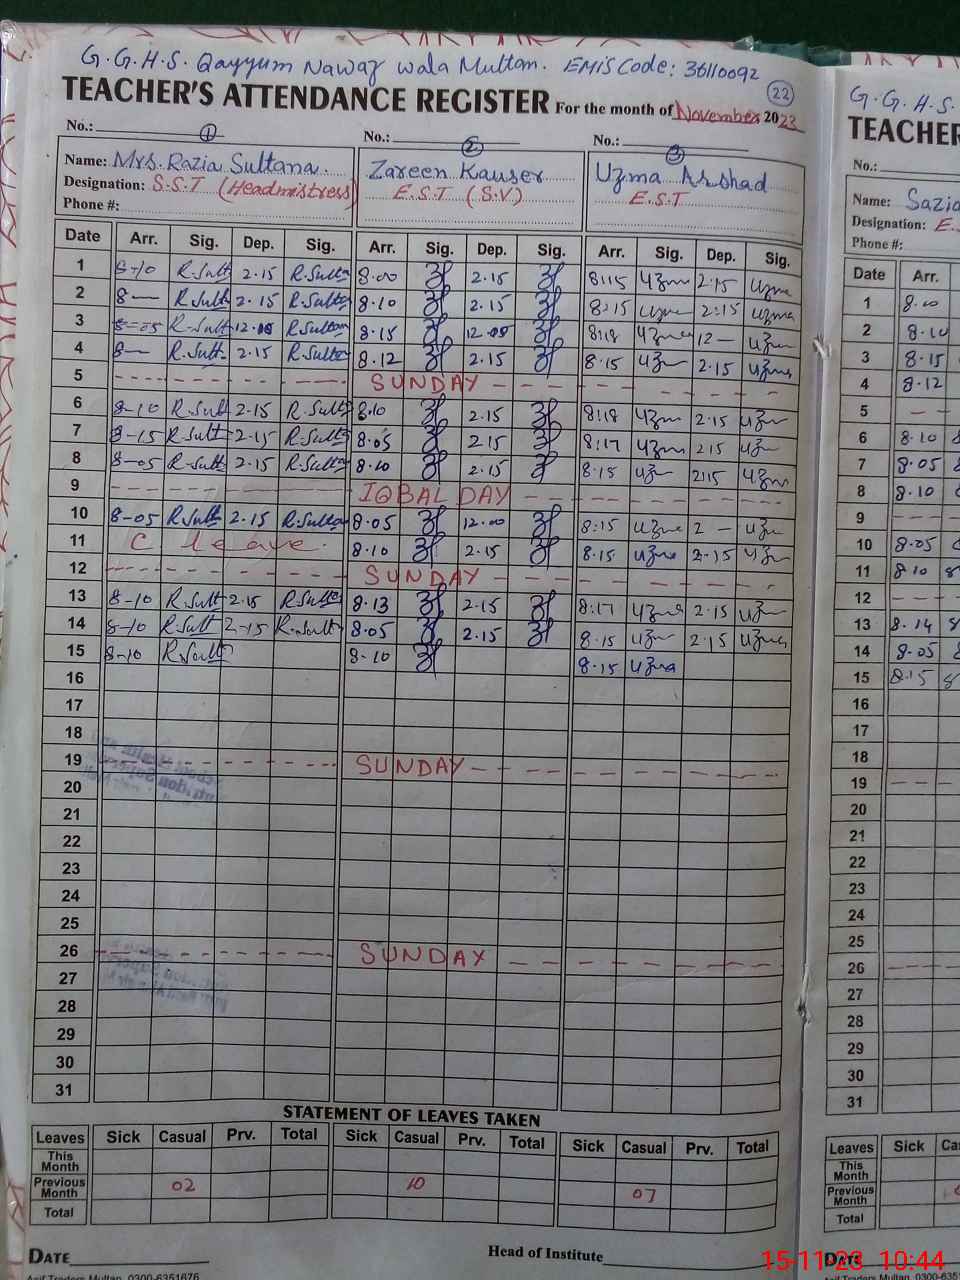 G.G.H.S. Qayyum Nawaz wala Multan. EMIS Code: 36110092
22
TEACHER'S ATTENDANCE REGISTER For the month of November 2023
No.: 1 No.: 2 No.: 3
Name: Mrs. Razia Sultana. Zareen Kauser Uzma Arshad
Designation: S.S.T (Headmistress) E.S.T (S.V) E.S.T
Phone #:
Date Arr. Sig. Dep. Sig. Arr. Sig. Dep. Sig. Arr. Sig. Dep. Sig.
1 8-10 R.Sult 2.15 R.Sulta 8.00 2.15 8:15 Uzm 2.15 Uzma
2 8— R.Sult 2.15 R.Sulta 8.10 2.15 8:15 Uzma 2:15 Uzma
3 8-05 R.Sult 12.05 R.Sultan 8.15 12.05 8:18 Uzma 12— Uzm
4 8— R.Sult. 2.15 R.Sulta 8.12 2.15 8.15 Uzm 2.15 Uzma
5 SUNDAY
6 8-10 R.Sult 2.15 R.Sult 8.10 2.15 8:18 Uzm 2.15 Uzm
7 8-15 R.Sult 2.15 R.Sult 8.05 2.15 8:17 Uzm 2.15 Uzm
8 8-05 R.Sult 2.15 R.Sulta 8.10 2.15 8.15 Uzm 2:15 Uzm
9 IQBAL DAY
10 8-05 R.Sult 2.15 R.Sulta 8.05 12.00 8:15 Uzma 2 — Uzm
11 C leave. 8.10 2.15 8.15 Uzma 2.15 Uzm
12 SUNDAY
13 8-10 R.Sult 2.15 R.Sulta 8.13 2.15 8:17 Uzma 2.15 Uzm
14 8-10 R.Sult 2-15 R.Sult 8.05 2.15 8.15 Uzm 2.15 Uzma
15 8-10 R.Sult 8.10 8.15 Uzma
16
17
18
19 SUNDAY
20
21
22
23
24
25
26 SUNDAY
27
28
29
30
31
STATEMENT OF LEAVES TAKEN
Leaves Sick Casual Prv. Total Sick Casual Prv. Total Sick Casual Prv. Total
This Month
Previous Month 02 10 07
Total
DATE Head of Institute
Asif Traders Multan. 0300-6351676
G.G.H.S.
TEACHER
No.:
Name: Sazia
Designation: E.
Phone #:
Date Arr.
1 8.10
2 8.10
3 8.15
4 8.12
5
6 8.10
7 8.05
8 8.10
9
10 8.05
11 8.10
12
13 8.14
14 8.05
15 8.15
16
17
18
19
20
21
22
23
24
25
26
27
28
29
30
31
Leaves Sick Ca
This Month
Previous Month
Total
DATE
15-11-23 10:44